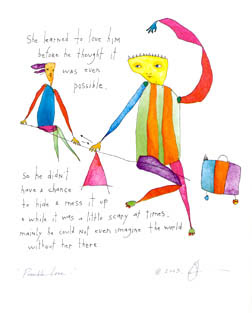 She learned to love him
before he thought it
was even
possible.
so he didn't
have a chance
to hide & mess it up
& while it was a little scary at times,
mainly he could not even imagine the world
without her there
Possible Love
© 2003